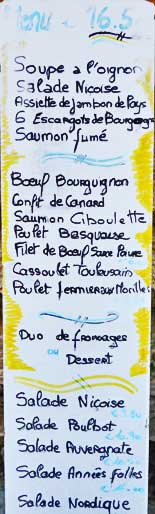 Menu - 16.5
Soupe a l'oignon
Salade Nicoise
Assiette de Jambon de Pays
6 Escargots de Bourgogne
Saumon fumé
Bœuf Bourguignon
Confit de Canard
Saumon Ciboulette
Poulet Basquaise
Filet de Bœuf Sauce Poivre
Cassoulet Toulousain
Poulet fermier aux Morilles
Duo de fromages
ou
Dessert
Salade Niçoise
Salade Poulbot
Salade Auvergnate
Salade Années Folles
Salade Nordique